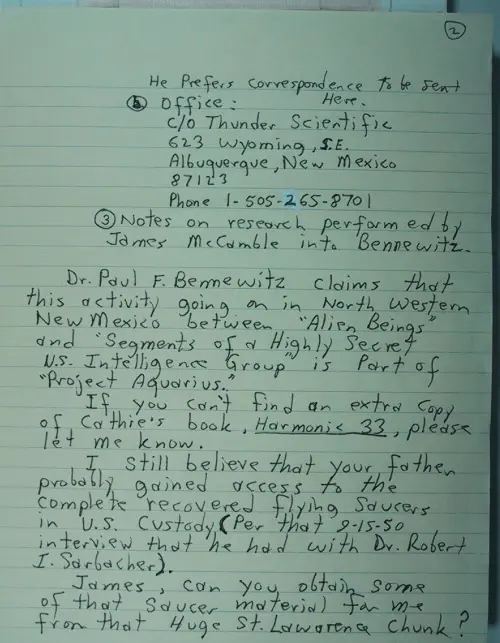 2
He Prefers correspondence to be sent
Here.
b Office:
C/O Thunder Scientific
623 Wyoming, S.E.
Albuquerque, New Mexico
87123
Phone 1-505-265-8701
3 Notes on research performed by
James McCamble into Bennewitz.
Dr. Paul F. Bennewitz claims that
this activity going on in North Western
New Mexico between "Alien Beings"
and "Segments of a Highly Secret
U.S. Intelligence Group" is Part of
"Project Aquarius."
If you can't find an extra Copy
of Cathie's book, Harmonic 33, please
let me know.
I still believe that your father
probably gained access to the
complete recovered flying Saucers
in U.S. Custody (Per that 9-15-50
interview that he had with Dr. Robert
I. Sarbacher).
James, can you obtain some
of that Saucer material for me
from that Huge St. Lawarence Chunk?